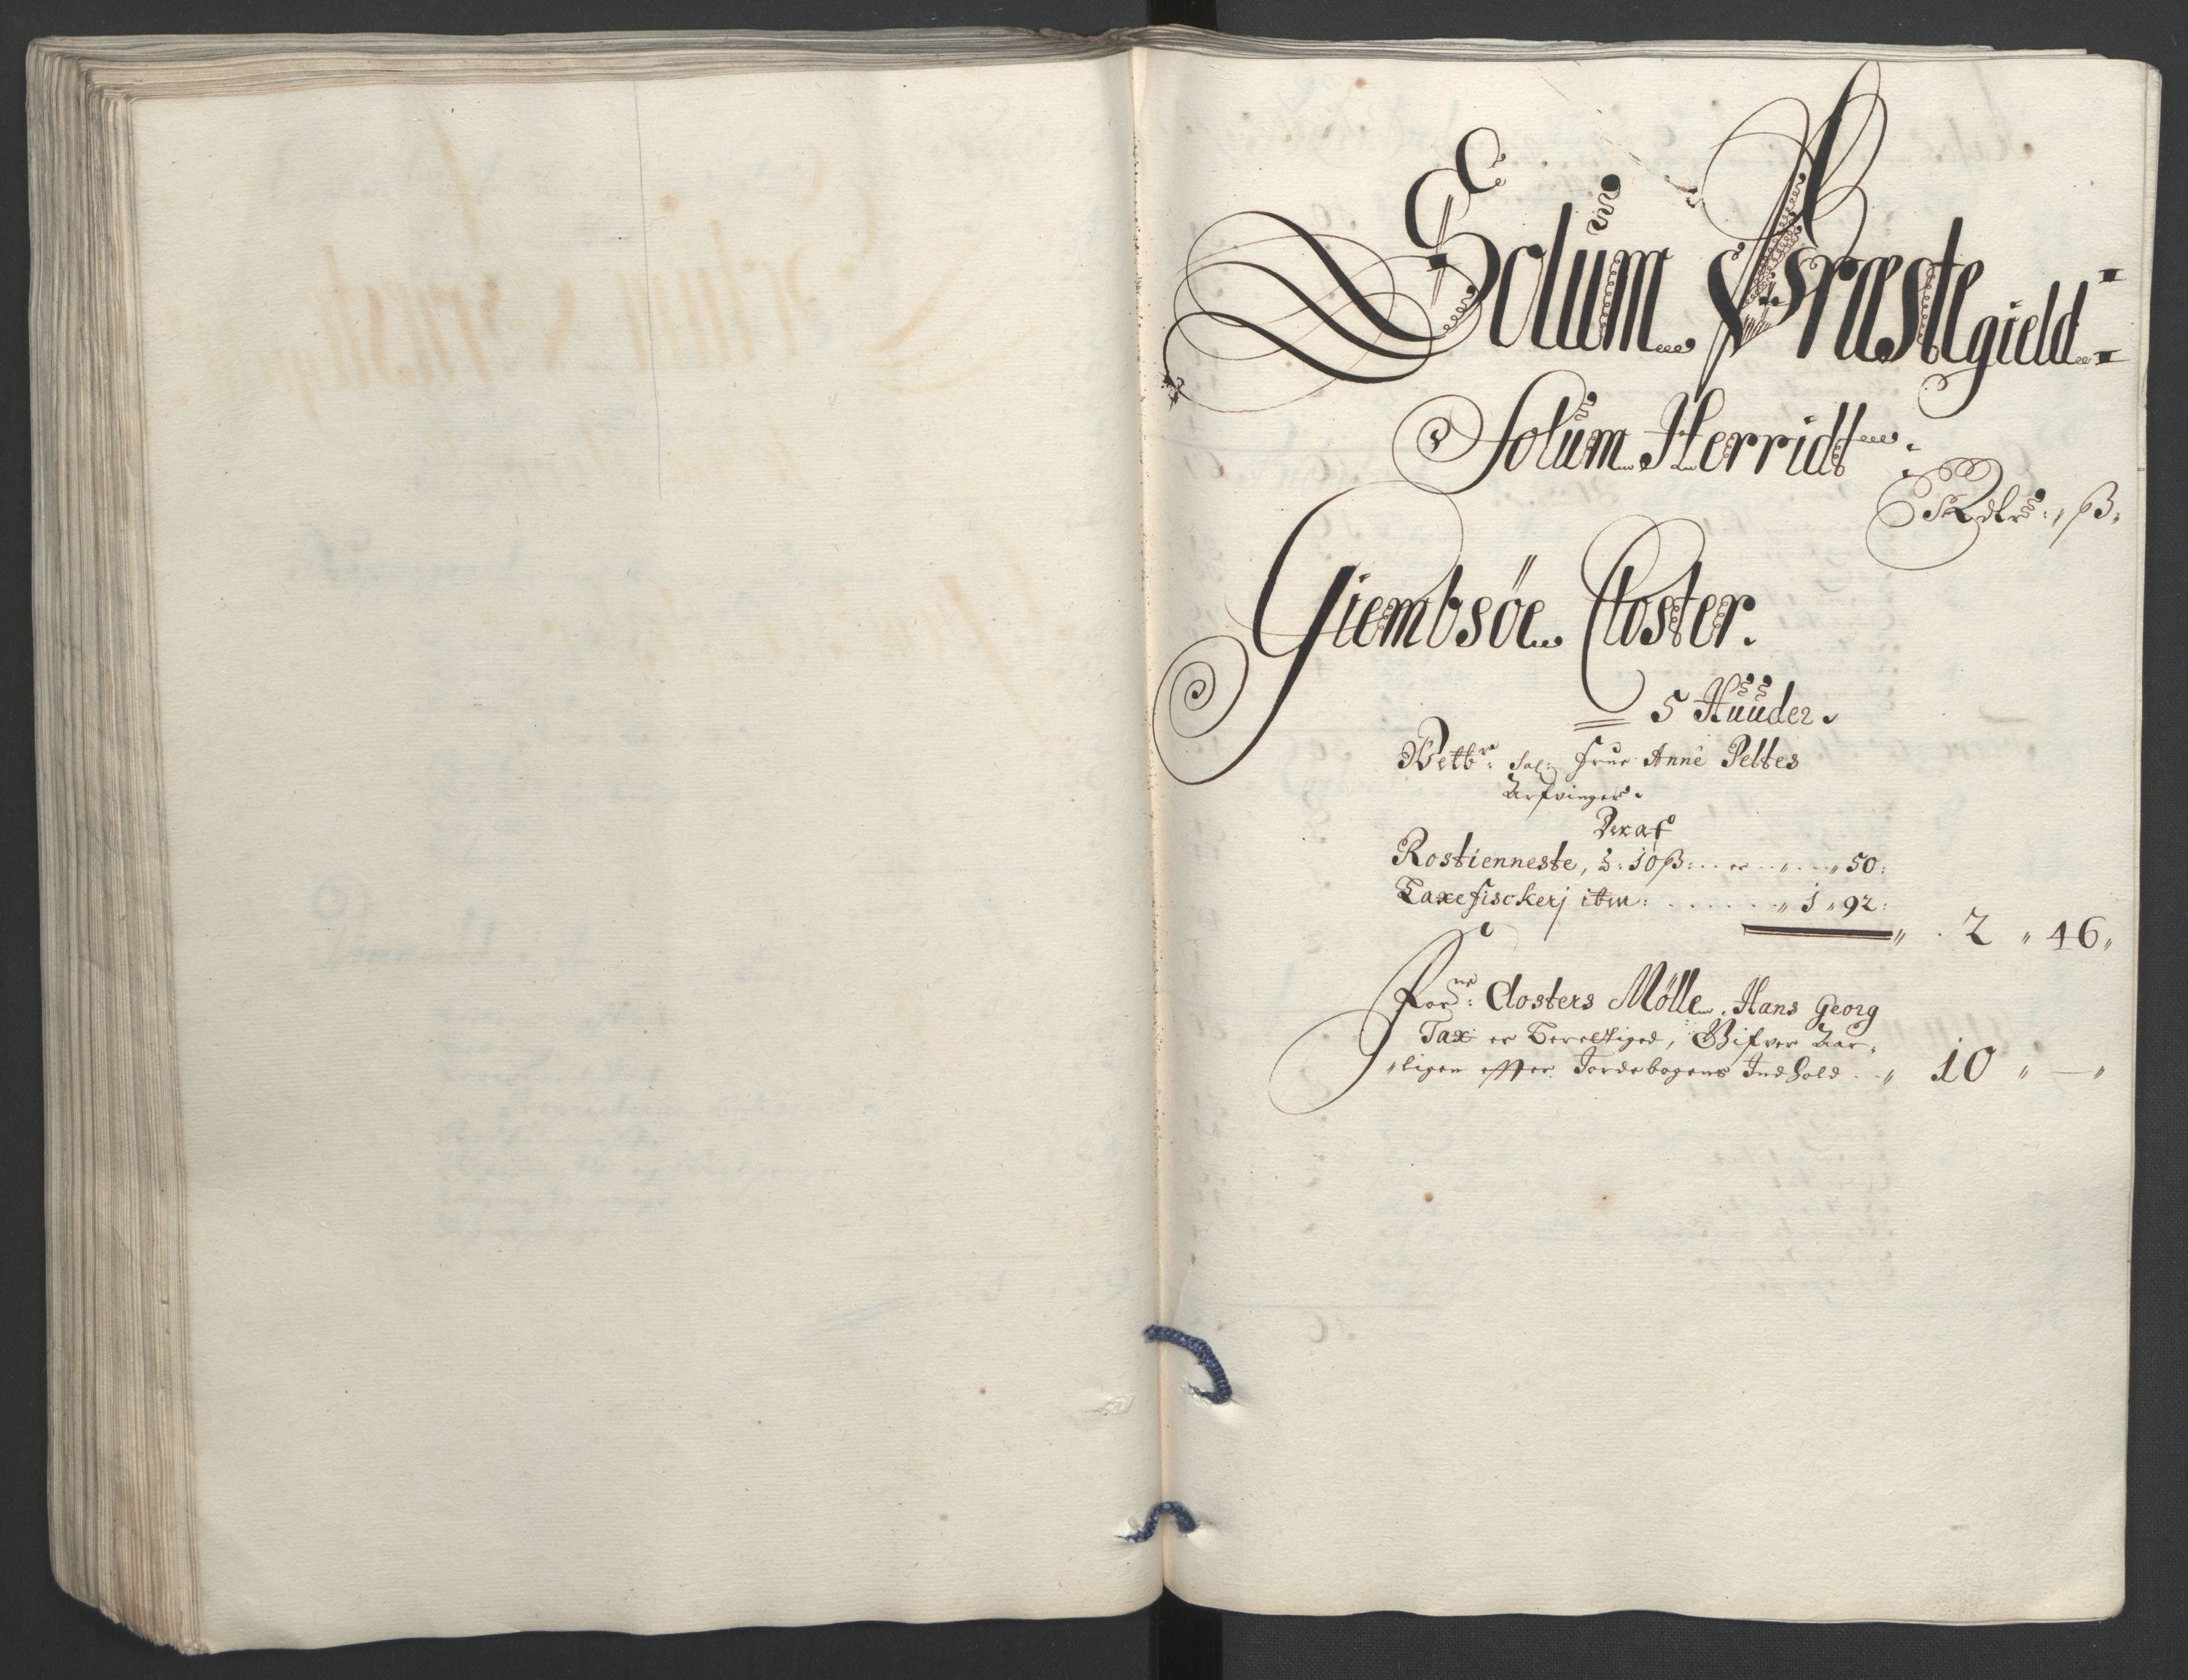 Solum Præstegield
Solum Herridt
Rdlr: ß
Giembsøe Closter.
5 Huuder.
Betbr: Sal: Frue Anne Peltes
Arfvinger.
Deraf
Rostienneste, 3: 10 ß: er 50:
Laxefisckerj item: 1 92:
2 46
Forne: Closters Mølle, Hans Georg
Tax er Berettiged, Gifver Aar-
ligen effter Jordebogens Indhold 10 —